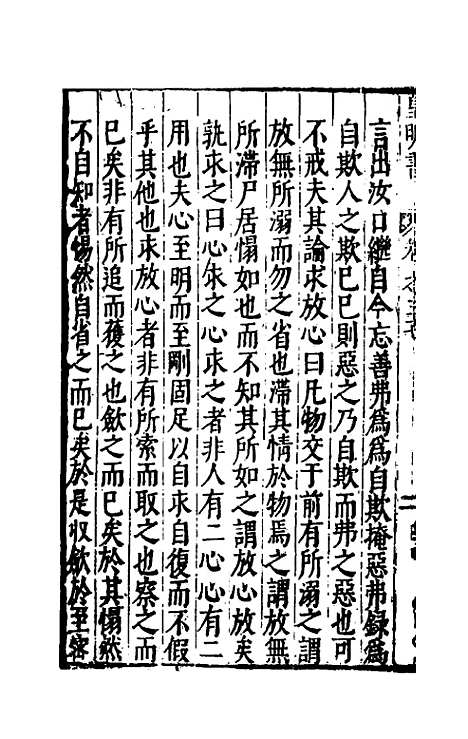 皇明書
言出汝口繼自今忘善弗為為自欺掩惡弗錄為
自欺人之欺已已則惡之乃自欺而弗之惡也可
不戒夫其論求放心曰凡物交于前有所溺之謂
放無所溺而勿之省也滯其情於物焉之謂放無
所滯尸居愓如也而不知其所如之謂放心放矣
孰求之曰心求之心求之者非人有二心心有二
用也夫心至明而至剛固足以自求自復而不假
乎其他也求放心者非有所索而取之也察之而
已矣非有所追而獲之也歛之而已矣於其愓然
不自知者惕然自省之而已矣於是収歛於至密